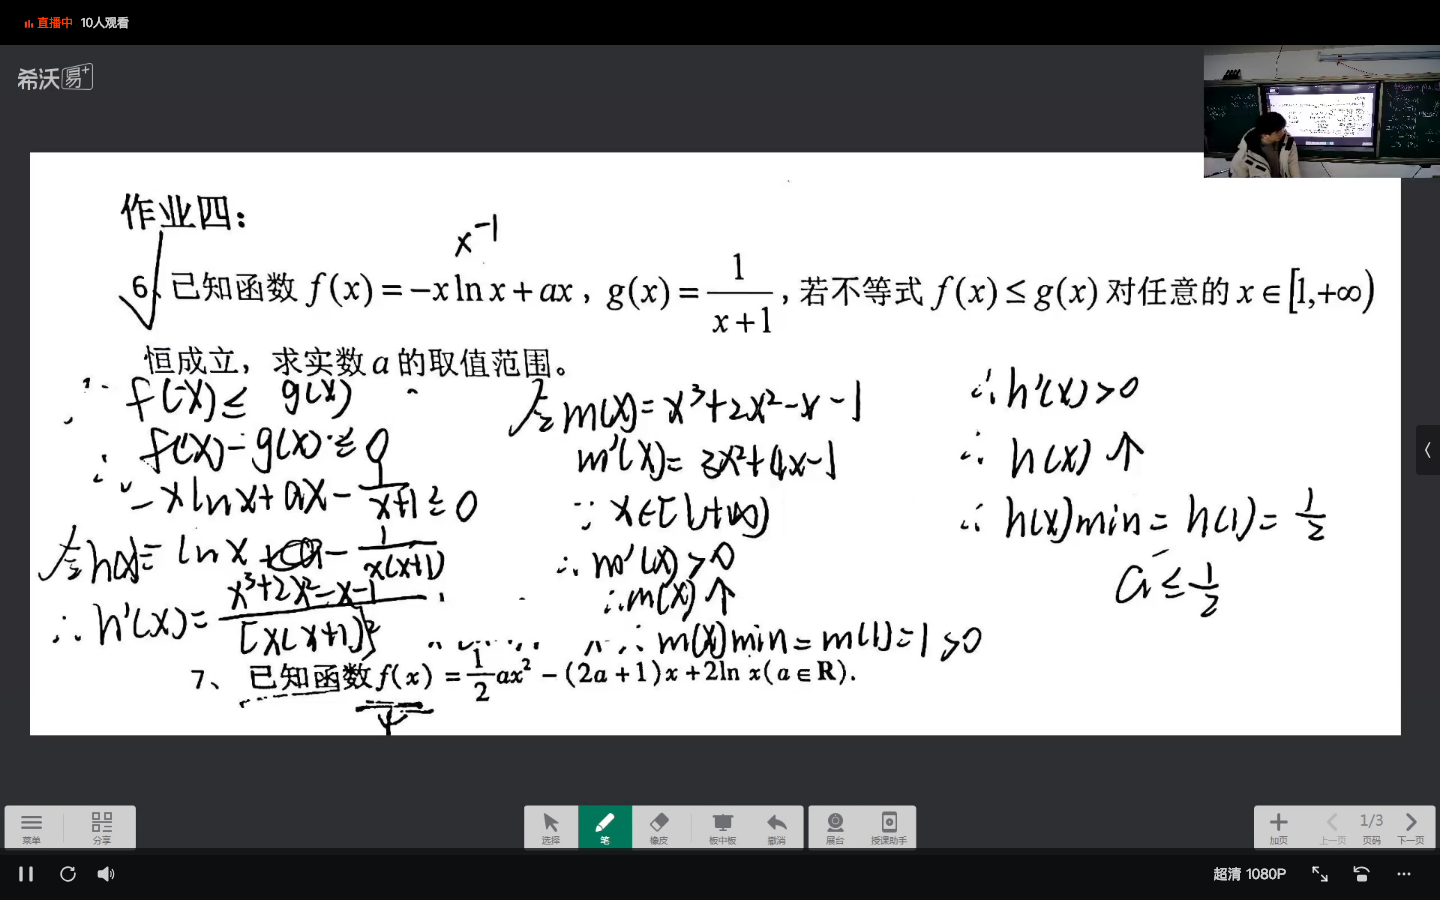 直播中 10人观看
希沃易+
作业四：
x⁻¹
6、已知函数 f(x)=-x ln x+ax，g(x)=1/(x+1)，若不等式 f(x)≤g(x) 对任意的 x∈[1,+∞)
恒成立，求实数 a 的取值范围。
∵ f(x)≤ g(x)
∴ f(x)-g(x)≤0
∴ -xlnx+ax-1/(x+1)≤0
令h(x)=lnx+1/(x(x+1))
∴ h'(x)=(x³+2x²-x-1)/[x(x+1)]²
令m(x)=x³+2x²-x-1
m'(x)=3x²+4x-1
∵ x∈[1,+∞)
∴ m'(x)>0
∴ m(x)↑
∴ m(x)min=m(1)=1>0
∴ h'(x)>0
∴ h(x)↑
∴ h(x)min=h(1)=1/2
a≤1/2
7、已知函数f(x)=1/2ax²-(2a+1)x+2ln x(a∈R).
菜单 分享 选择 笔 橡皮 板中板 撤消 展台 授课助手 加页 上一页 1/3 页码 下一页
超清 1080P